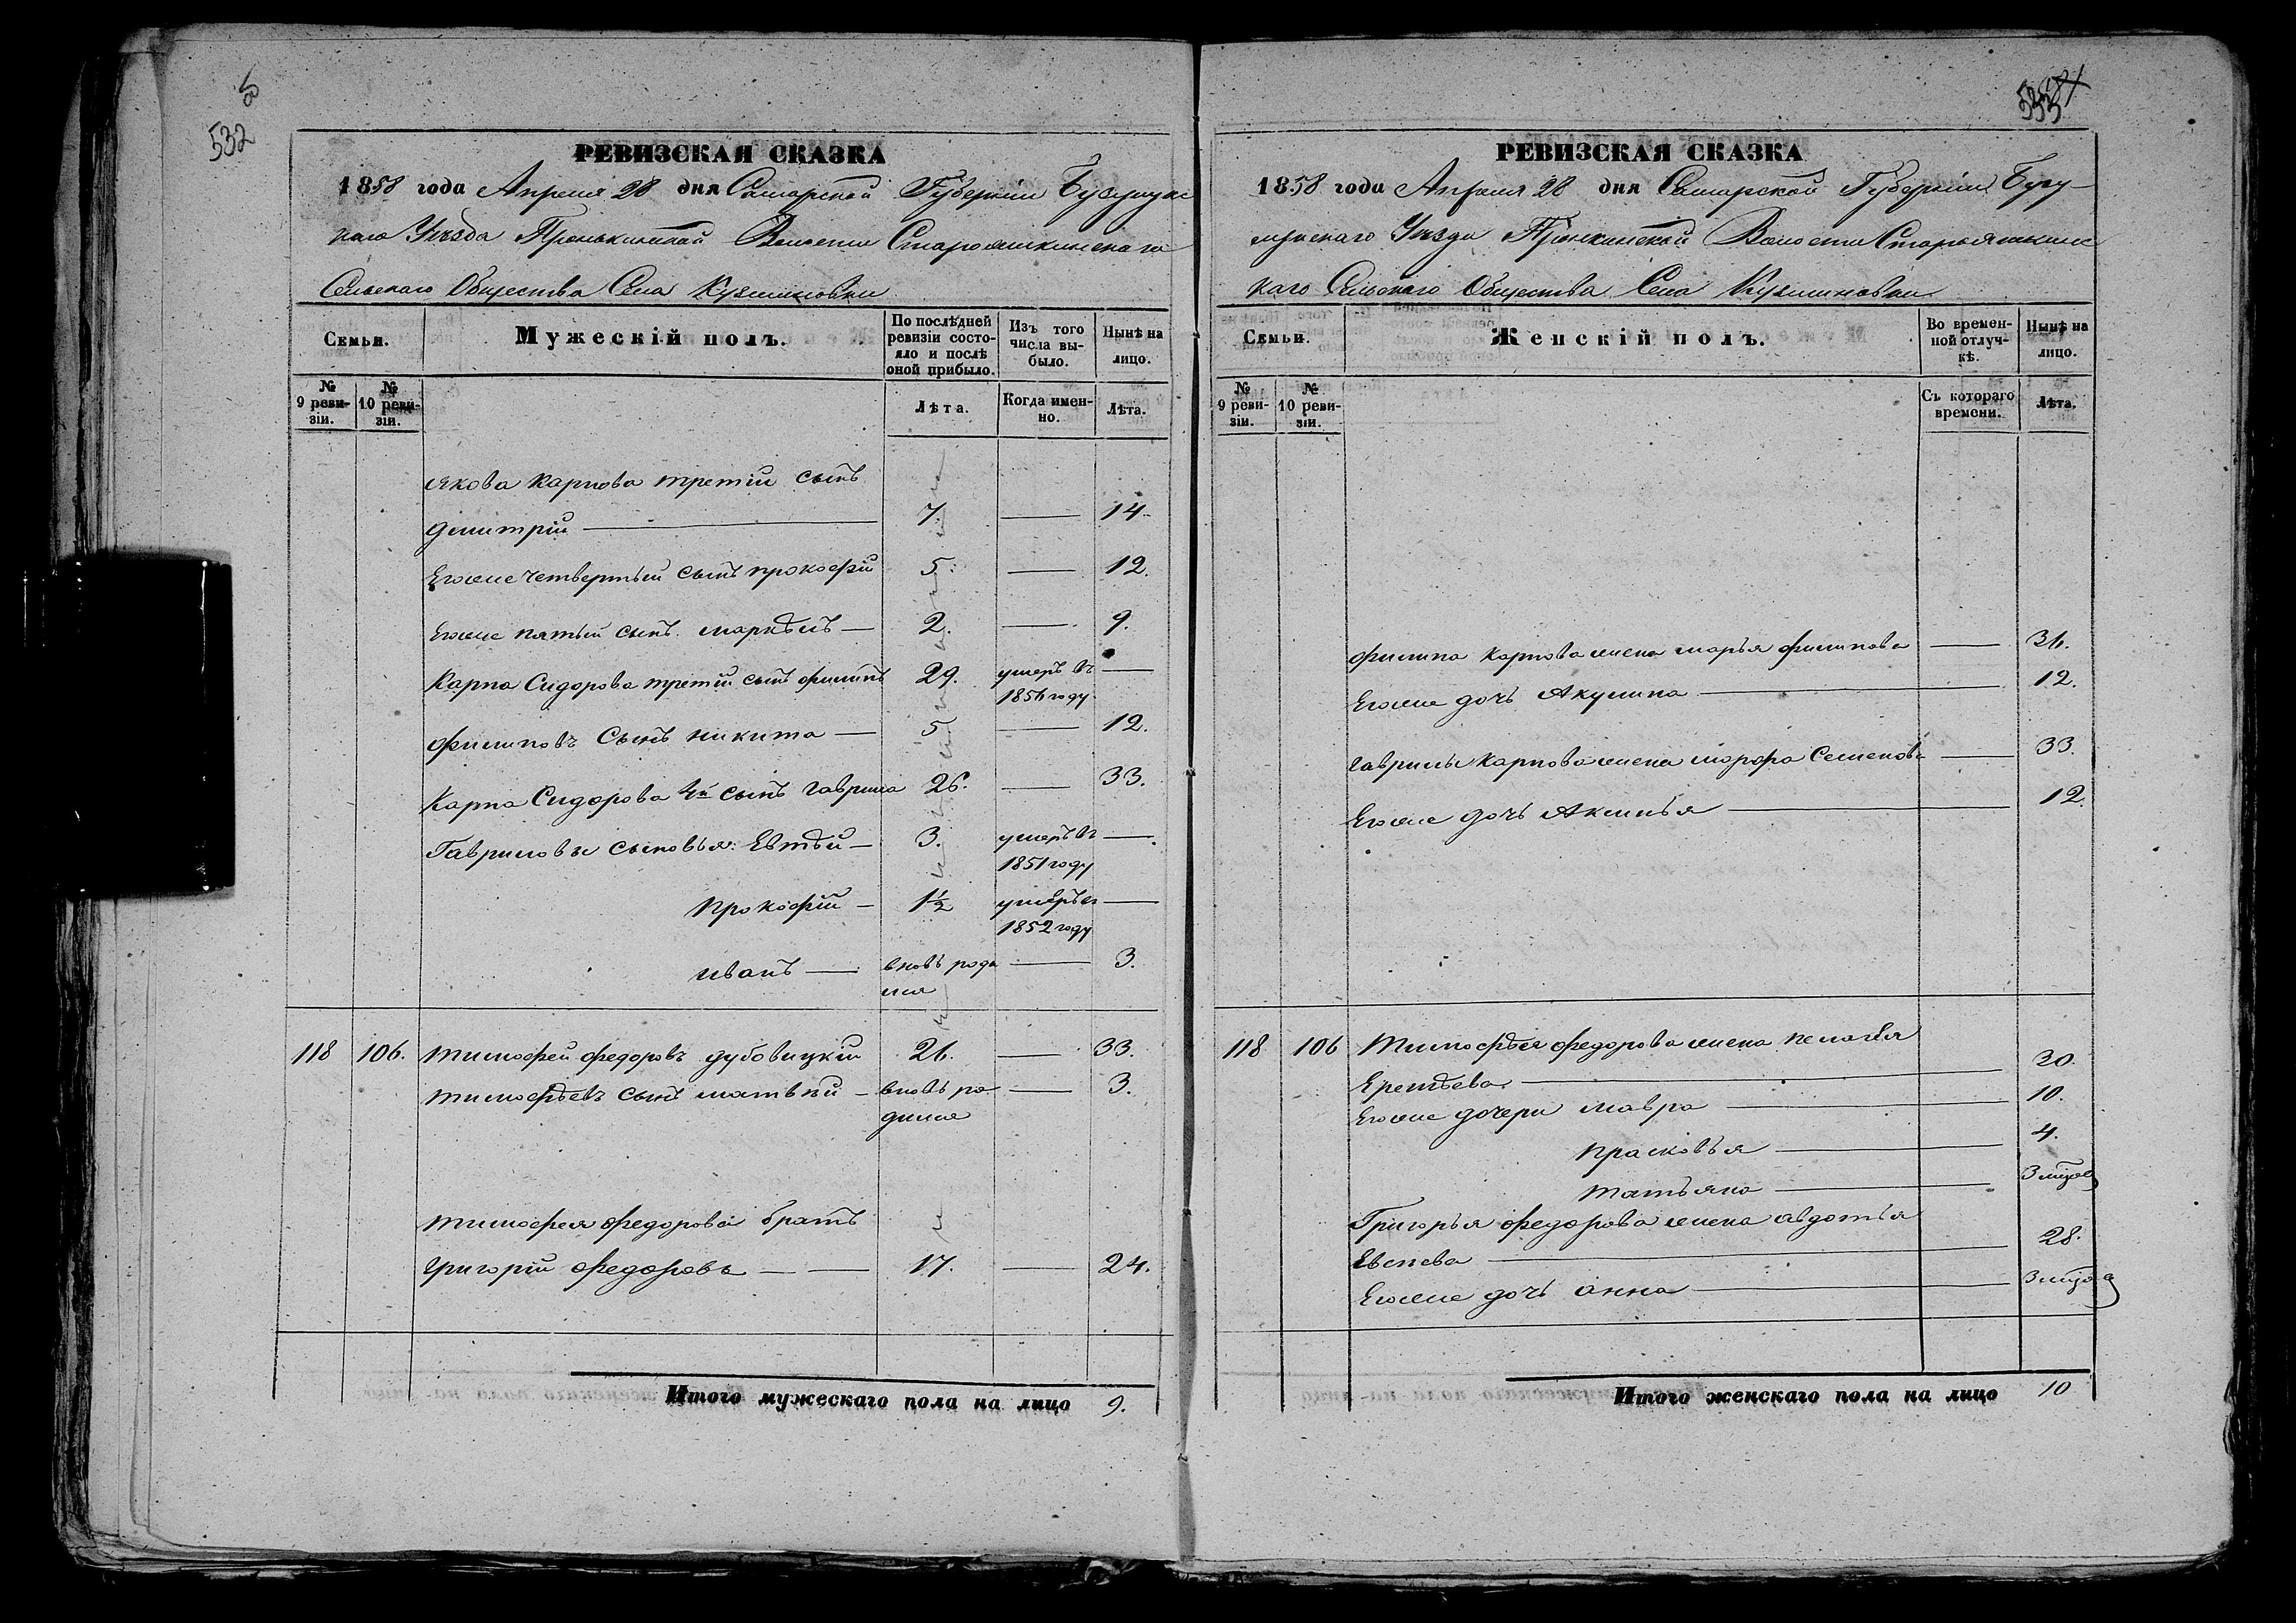 532
РЕВИЗСКАЯ СКАЗКА
1858 года Апреля 28 дня Самарской Губерніи Бузулукс
каго Уѣзда Пронькинской Волости Старояшкинскаго
Сельскаго Общества Села Кузминовки
Семьи.
Мужескій полъ.
По послѣдней ревизіи состояло и послѣ оной прибыло.
Изъ того числа выбыло.
Нынѣ на лицо.
№ 9 ревизіи.
№ 10 ревизіи.
Лѣта.
Когда именно.
Лѣта.
Якова Карпова третій сынъ
Дмитрій — 7. — 14.
Егоже четвертый сынъ Прокофій 5. — 12.
Егоже пятый сынъ Маркѣлъ — 2. — 9.
Карпа Сидорова третій сынъ Филипъ 29. умеръ въ —
1856 году
Филиповъ сынъ Никита — 5 — 12.
Карпа Сидорова 4й сынъ Гаврила 26. — 33.
Гавриловы сыновья: Евтѣй — 3. умеръ въ —
1851 году
Прокофій — 1½ умеръ въ —
1852 году
Иванъ — вновь роди — 3.
лся
118 106. Тимофей Федоровъ Дубовицкій 26. — 33.
Тимофѣевъ сынъ Матвѣй — вновь ро — 3.
дился
Тимофея Федорова братъ
Григорій Федоровъ — 17. — 24.
Итого мужескаго пола на лицо 9.
РЕВИЗСКАЯ СКАЗКА
1858 года Апреля 28 дня Самарской Губерніи Бузу-
лукскаго Уѣзда Пронкинской Волости Старояшкинс
каго Сельскаго Общества Села Кузминовки
Семьи.
Женскій полъ.
Во временной отлучкѣ.
Нынѣ на лицо.
№ 9 ревизіи.
№ 10 ревизіи.
Съ котораго времени.
Лѣта.
Филипа Карпова жена Марья Филипова — 36.
Егоже дочь Акулина — 12.
Гаврилы Карпова жена Марфа Семенова — 33.
Егоже дочь Аксинья — 12.
118 106 Тимофѣя Федорова жена Пелагѣя
Еремѣева — 30.
Егоже дочери Мавра — 10.
Прасковья — 4.
Татьяна — 3 мѣсяца
Григорья Федорова жена Авдотья
— 28.
Егоже дочь Анна — 3 мѣсяца
Итого женскаго пола на лицо 10